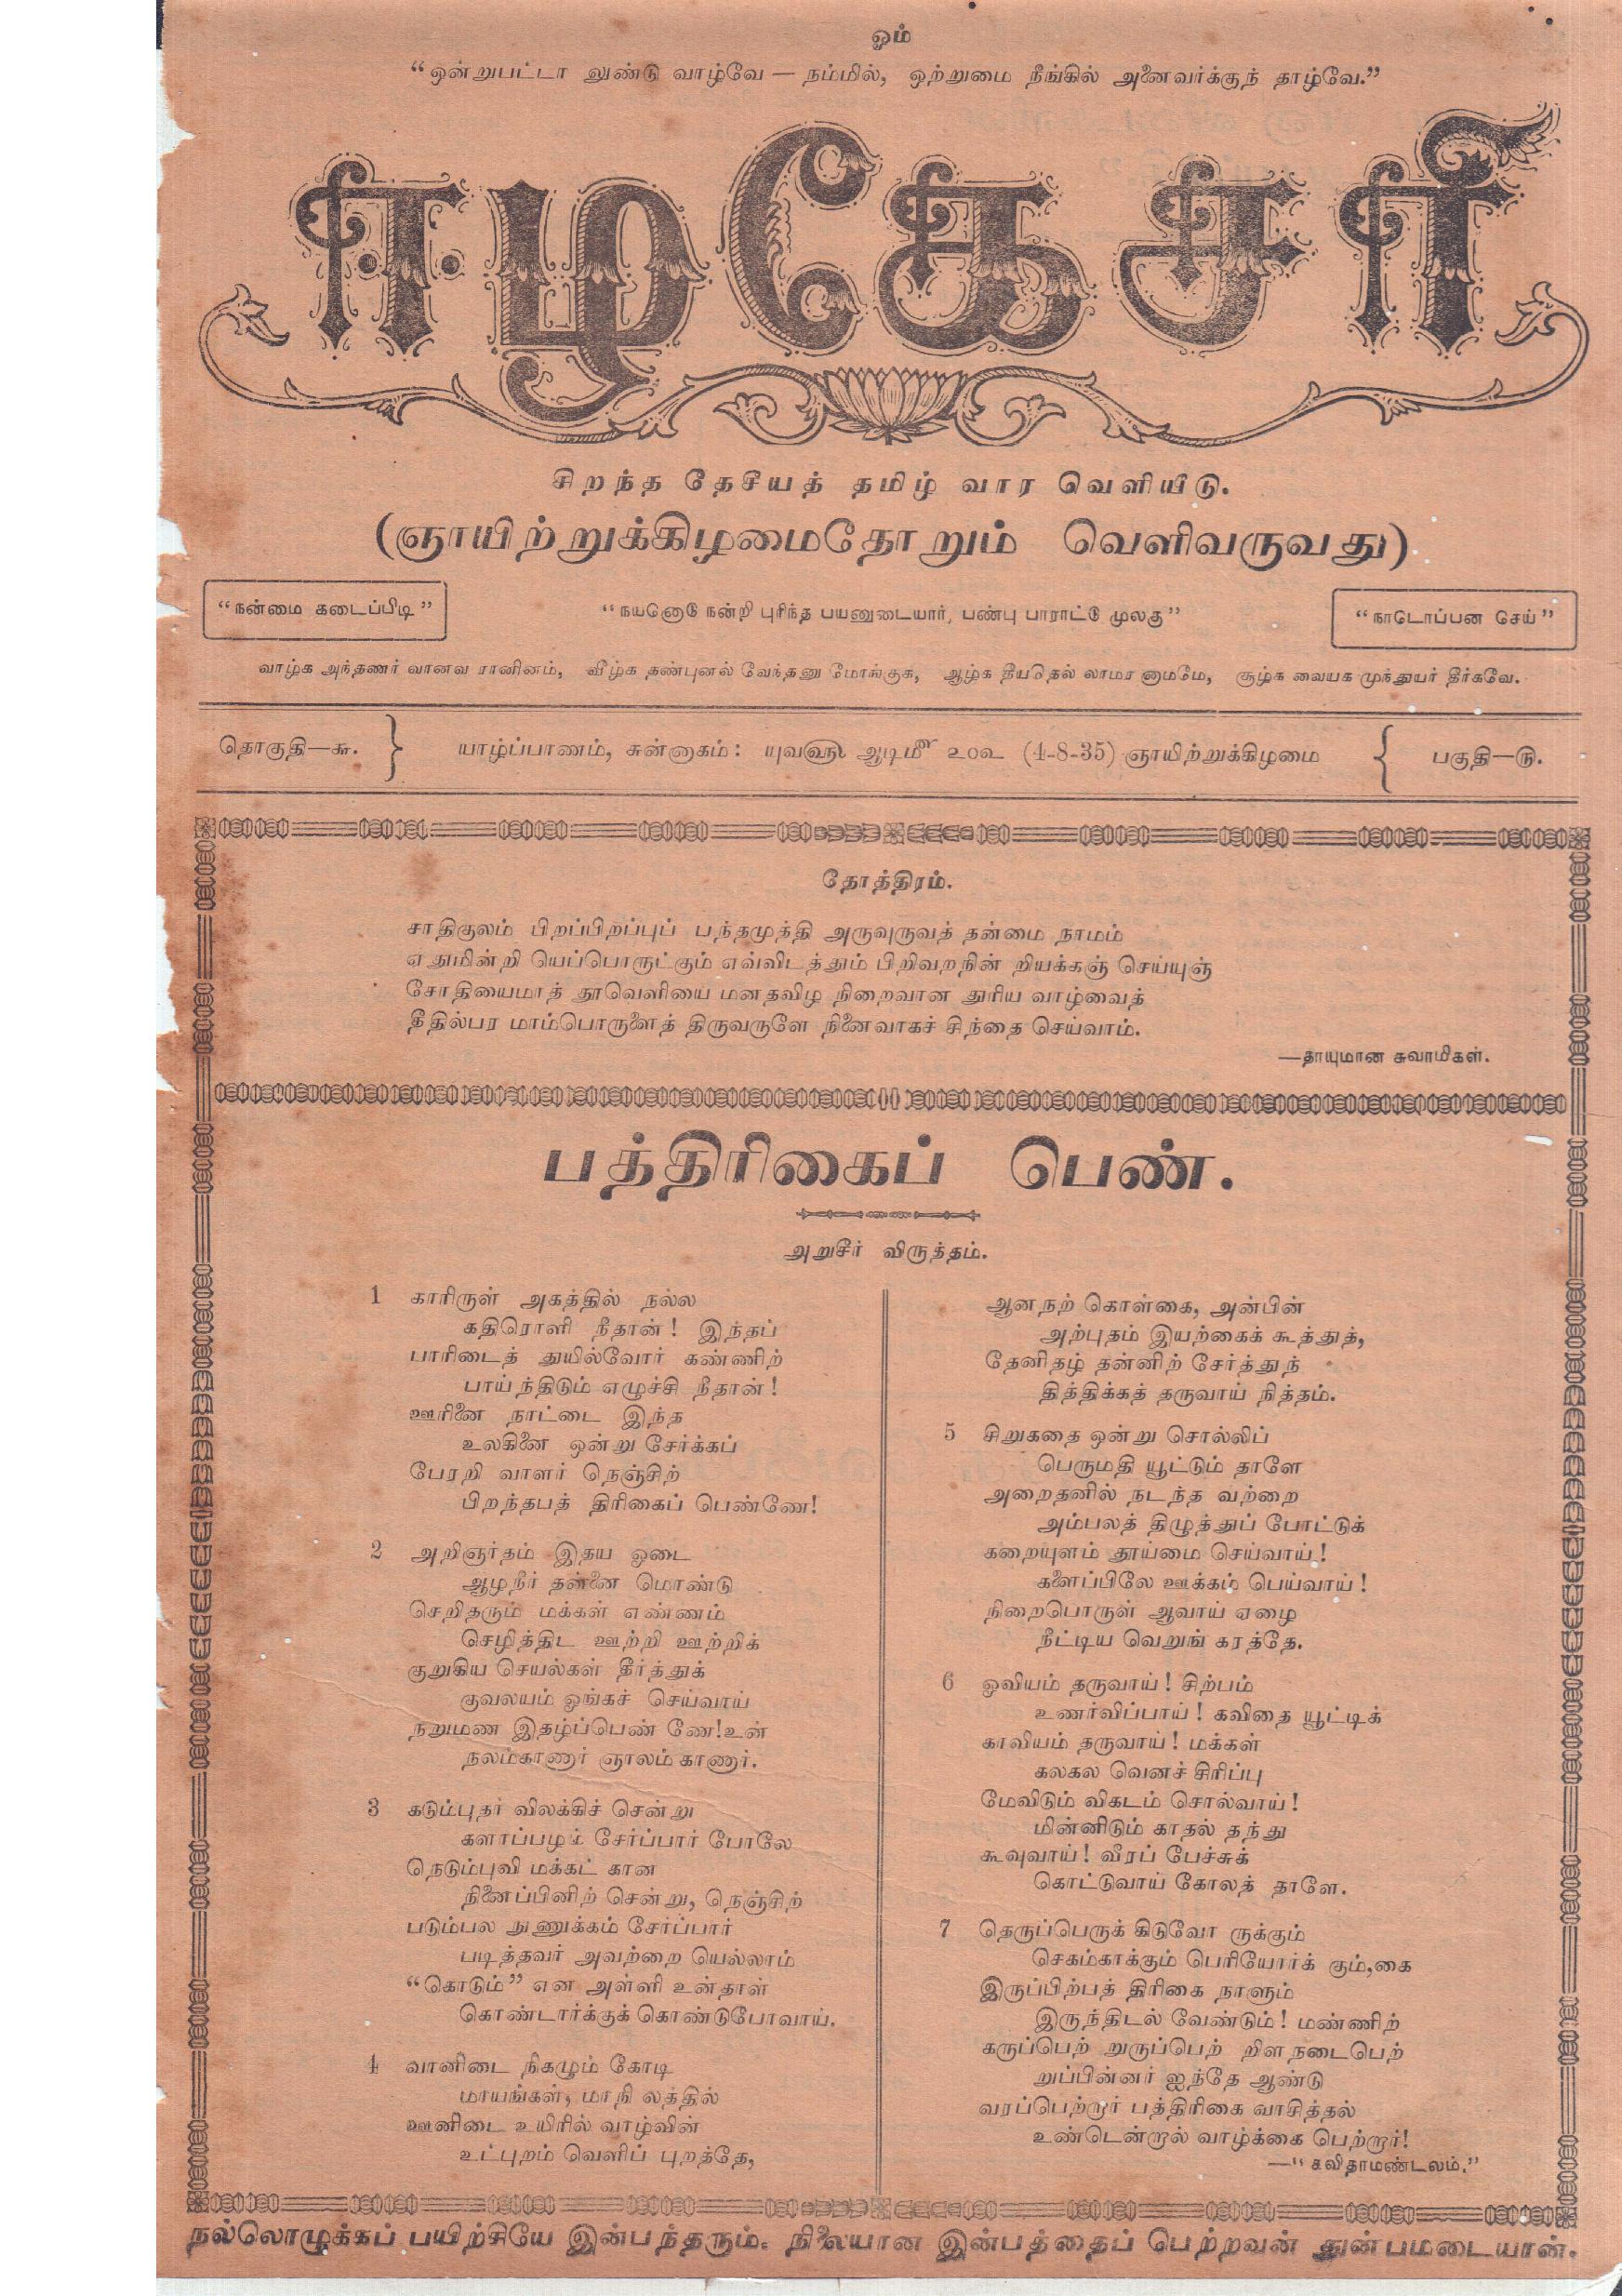 ஓம்
“ஒன்றுபட்டா லுண்டு வாழ்வே — நம்மில், ஒற்றுமை நீங்கில் அனைவர்க்குந் தாழ்வே.”
ஈழகேசரி
சிறந்த தேசீயத் தமிழ் வார வெளியீடு.
(ஞாயிற்றுக்கிழமைதோறும் வெளிவருவது)
“நன்மை கடைப்பிடி”
“நயனொடு நன்றி புரிந்த பயனுடையார், பண்பு பாராட்டு முலகு”
“நாடொப்பன செய்”
வாழ்க அந்தணர் வானவ ரானினம், வீழ்க தண்புனல் வேந்தனு மோங்குக, ஆழ்க தீயதெல் லாமர னாமமே, சூழ்க வையக முந்துயர் தீர்கவே.
தொகுதி—௬.
யாழ்ப்பாணம், சுன்னாகம்: யுவ௵ ஆடி௴ ௨௦௨ (4-8-35) ஞாயிற்றுக்கிழமை
பகுதி—௫.
தோத்திரம்.
சாதிகுலம் பிறப்பிறப்புப் பந்தமுத்தி அருவுருவத் தன்மை நாமம்
ஏதுமின்றி யெப்பொருட்கும் எவ்விடத்தும் பிறிவறநின் றியக்கஞ் செய்யுஞ்
சோதியைமாத் தூவெளியை மனதவிழ நிறைவான துரிய வாழ்வைத்
தீதில்பர மாம்பொருளைத் திருவருளே நினைவாகச் சிந்தை செய்வாம்.
—தாயுமான சுவாமிகள்.
பத்திரிகைப் பெண்.
அறுசீர் விருத்தம்.
1 காரிருள் அகத்தில் நல்ல
கதிரொளி நீதான்! இந்தப்
பாரிடைத் துயில்வோர் கண்ணிற்
பாய்ந்திடும் எழுச்சி நீதான்!
ஊரினை நாட்டை இந்த
உலகினை ஒன்று சேர்க்கப்
பேரறி வாளர் நெஞ்சிற்
பிறந்தபத் திரிகைப் பெண்ணே!
2 அறிஞர்தம் இதய ஓடை
ஆழநீர் தன்னை மொண்டு
செறிதரும் மக்கள் எண்ணம்
செழித்திட ஊற்றி ஊற்றிக்
குறுகிய செயல்கள் தீர்த்துக்
குவலயம் ஓங்கச் செய்வாய்
நறுமண இதழ்ப்பெண் ணே!உன்
நலம்காணார் ஞாலம் காணார்.
3 கடும்புதர் விலக்கிச் சென்று
களாப்பழம் சேர்ப்பார் போலே
நெடும்புவி மக்கட் கான
நினைப்பினிற் சென்று, நெஞ்சிற்
படும்பல நுணுக்கம் சேர்ப்பார்
படித்தவர் அவற்றை யெல்லாம்
“கொடும்” என அள்ளி உன்தாள்
கொண்டார்க்குக் கொண்டுபோவாய்.
4 வானிடை நிகழும் கோடி
மாயங்கள், மாநி லத்தில்
ஊனிடை உயிரில் வாழ்வின்
உட்புறம் வெளிப் புறத்தே,
ஆனநற் கொள்கை, அன்பின்
அற்புதம் இயற்கைக் கூத்துத்,
தேனிதழ் தன்னிற் சேர்த்துந்
தித்திக்கத் தருவாய் நித்தம்.
5 சிறுகதை ஒன்று சொல்லிப்
பெருமதி யூட்டும் தாளே
அறைதனில் நடந்த வற்றை
அம்பலத் திழுத்துப் போட்டுக்
கறையுளம் தூய்மை செய்வாய்!
களைப்பிலே ஊக்கம் பெய்வாய்!
நிறைபொருள் ஆவாய் ஏழை
நீட்டிய வெறுங் கரத்தே.
6 ஓவியம் தருவாய்! சிற்பம்
உணர்விப்பாய்! கவிதை யூட்டிக்
காவியம் தருவாய்! மக்கள்
கலகல வெனச் சிரிப்பு
மேவிடும் விகடம் சொல்வாய்!
மின்னிடும் காதல் தந்து
கூவுவாய்! வீரப் பேச்சுக்
கொட்டுவாய் கோலத் தாளே.
7 தெருப்பெருக் கிடுவோ ருக்கும்
செகம்காக்கும் பெரியோர்க் கும்,கை
இருப்பிற்பத் திரிகை நாளும்
இருந்திடல் வேண்டும்! மண்ணிற்
கருப்பெற் றுருப்பெற் றிளநடைபெற்
றுப்பின்னர் ஐந்தே ஆண்டு
வரப்பெற்றார் பத்திரிகை வாசித்தல்
உண்டென்றால் வாழ்க்கை பெற்றார்!
—“கவிதாமண்டலம்.”
நல்லொழுக்கப் பயிற்சியே இன்பந்தரும். நிலையான இன்பத்தைப் பெற்றவன் துன்பமடையான்.